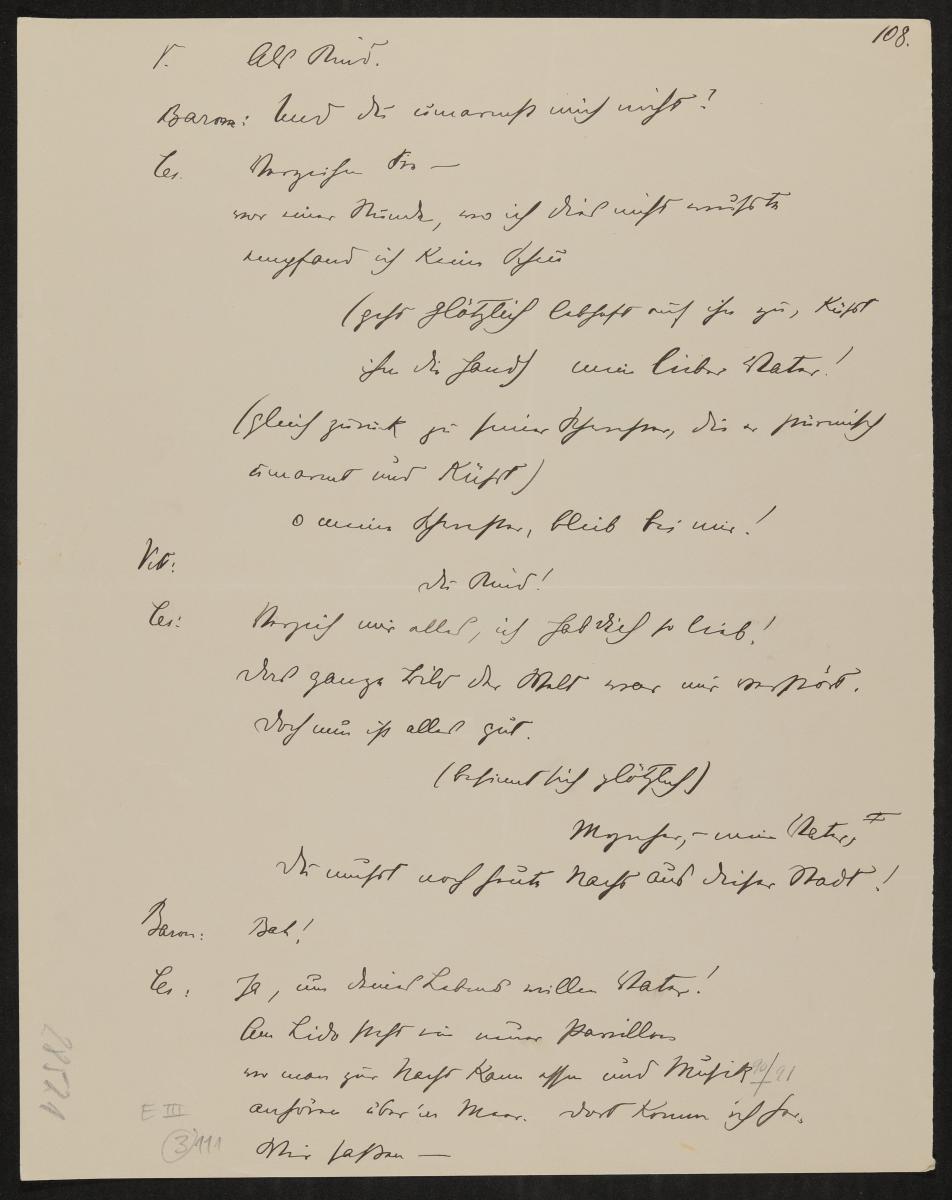 108.
V. Als Kind.
Baron: Und du umarmst mich nicht?
Ces. Verzeihen Sie —
vor einer Stunde, wo ich dies nicht wußte
empfand ich keine Scheu
(geht plötzlich lebhaft auf ihn zu, küßt
ihm die Hand) mein lieber Vater!
(gleich zurück zu seiner Schwester, die er stürmisch
umarmt und küßt)
o meine Schwester, bleib bei mir!
Vitt:
du Kind!
Ces: Verzeih mir alles, ich hab dich so lieb!
das ganze Bild der Welt war mir verstört.
doch nun ist alles gut.
(besinnt sich plötzlich)
Mynher, – mein Vater,
du mußt noch heute Nacht aus dieser Stadt!
Baron: Bah!
Ces: Ja, um deines Lebens willen Vater!
Am Lido steht ein neuer Pavillon
wo man zur Nacht kann essen und Musik 90/91
anhören über'm Meer. dort komm ich her.
Wir saßen —
28571
E III
3/111